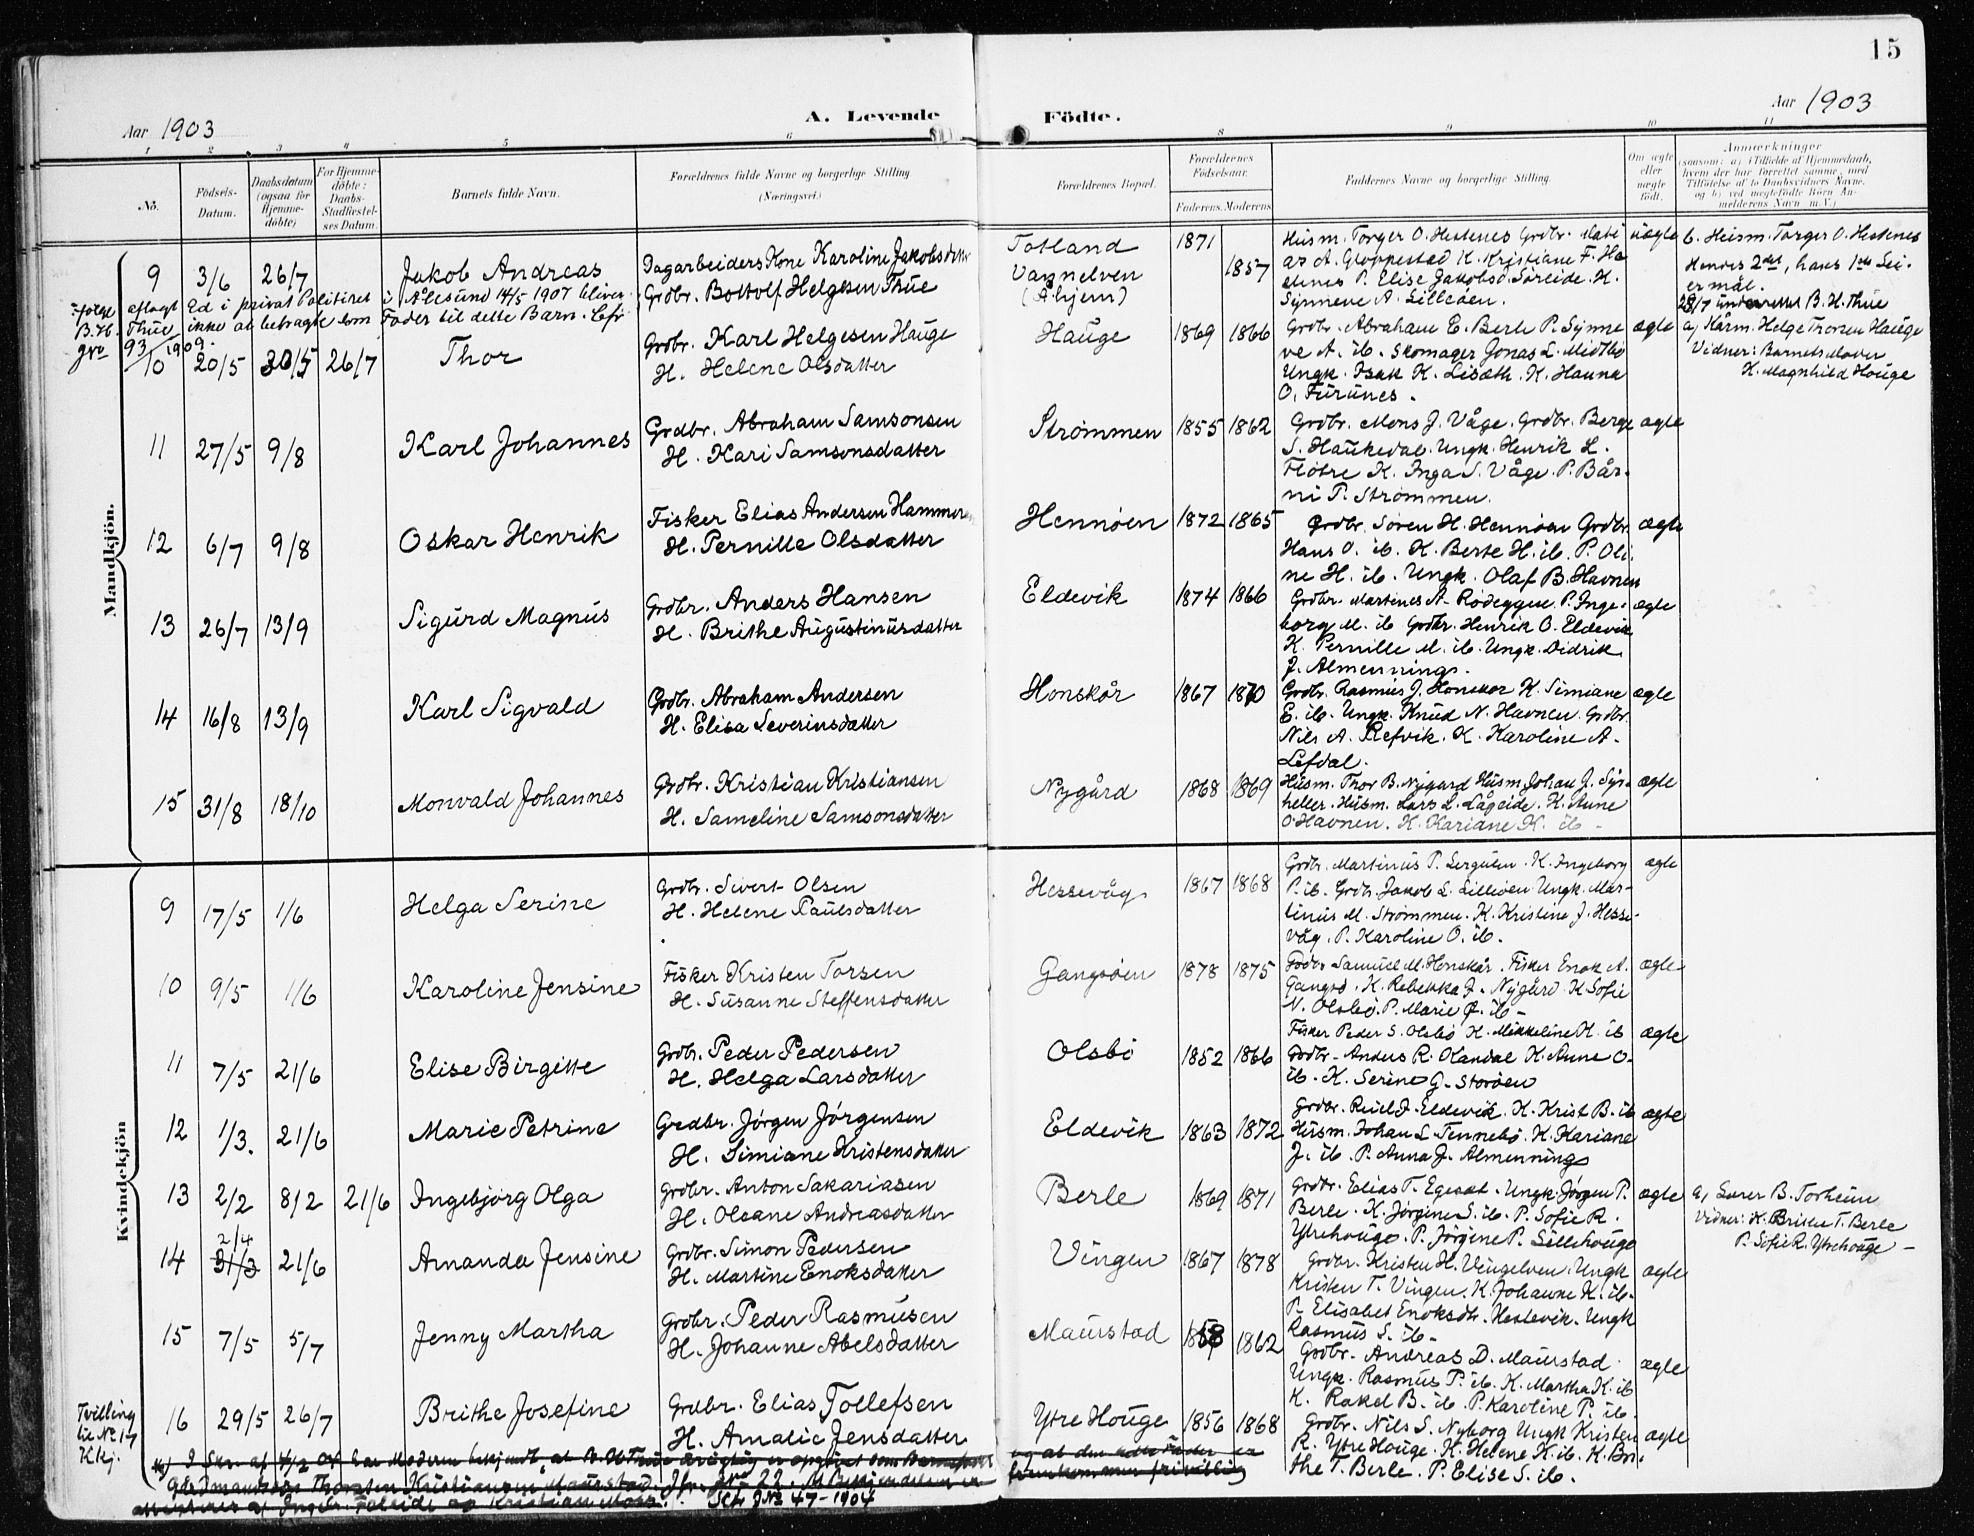 15
Aar 1903
A. Levende
Födte.
Aar 1903
1 2 3 4 5 6 8 9 10 11
No.
Födsels-Datum.
Daabsdatum (ogsaa for Hjemme-döbte)
For Hjemme-döbte: Daabs-Stadfæstel-ses Datum.
Barnets fulde Navn.
Forældrenes fulde Navne og borgerlige Stilling (Næringsvei.)
Forældrenes Bopæl.
Forældrenes Födselsaar.
Faderens. Moderens
Faddernes Navne og borgerlige Stilling.
Om ægte eller uægte födt.
Anmærkninger
(saasom: a) i Tilfælde af Hjemmedaab, hvem der har forrettet samme, med Tilföielse af to Daabsvidners Navne, og b) ved uægtefödte Börn An-melderens Navn m. V.)
Mandkjön.
9 3/6 26/7 Jakob Andreas
Dagarbeiders Kone Karoline Jakobsdtter
Grdbr. Bottolf Helgesen Thue
Totland
Vagnelven
(Åhjem)
1871 1857
Husm. Torger O. Hestenes Grdbr. Mati
as A. Gloppestad K. Kristiane F. He
stenes P. Elise Jakobsd. Søreide. K.
Synneve A. Lilleøen.
uægte
b. Husm. Torger O. Hestenes
Hendes 2det, hans 1ste Lei-
ermål.
28/7 underrettet B. H. Thue
Ifølge aflagt Ed i privat Politiret i Ålesund 14/5 1907 bliver
B. H. Thue ikke at betragte som Fader til dette Barn. Cfr
Jno 93/1909.
10 20/5 30/5 26/7 Thor
Grdbr. Karl Helgesen Hauge
H. Helene Olsdatter
Hauge 1869 1866
Grdbr. Abraham E. Berle P. Synne
ve A. ib. Skomager Jonas L. Midtbø
Ungk. Isak K. Lisæth. K. Hanna
O. Furunes.
ægte
a) Kårm. Helge Thorsen Hauge
Vidner: Barnets Moder
K. Magnhild Houge
11 27/5 9/8 Karl Johannes
Grdbr. Abraham Samsonsen
H. Kari Samsonsdatter
Strømmen 1855 1862
Grdbr. Mons J. Våge. Grdbr. Berge
S. Haukedal. Ungk. Henrik L.
Fløtre K. Inga S. Våge. P. Bår-
ni P. Strømmen.
ægte
12 6/7 9/8 Oskar Henrik
Fisker Elias Andersen Hammeren
H. Pernille Olsdatter
Hennøen 1872 1865
Grdbr. Søren H. Hennøen Grdbr.
Hans O. ib. K. Berte H. ib. P. Oli-
ne H. ib. Ungk. Olaf B. Havnen
ægte
13 26/7 13/9 Sigurd Magnus
Grdbr. Anders Hansen
H. Brithe Augustinusdatter
Eldevik 1874 1866
Grdbr. Martenes A. Rødeggen. P. Inge-
borg M. ib. Grdbr. Henrik O. Eldevik
K. Pernille M. ib. Ungk. Didrik
J. Almennings.
ægte
14 16/8 13/9 Karl Sigvald
Grdbr. Abraham Andersen
H. Elisa Severinsdatter
Honskår 1867 1870
Grdbr. Rasmus J. Honskor K. Simiane
E. ib. Ungk. Knud N. Havnen. Grdbr.
Nils A. Refvik. K. Karoline A.
Lefdal.
ægte
15 31/8 18/10 Monvald Johannes
Grdbr. Kristian Kristiansen
H. Sameline Samsonsdatter
Nygård 1868 1869
Husm. Thor B. Nygard Husm. Johan J. Syr-
heller. Husm. Lars L. Lågeide. K. Anne
O. Havnen. K. Kariane K. ib.
ægte
Kvindekjön
9 17/5 1/6 Helga Serine
Grdbr. Sivert Olsen
H. Helene Paulsdatter
Hessevåg 1867 1868
Grdbr. Martinus P. K. Ingeborg
P. ib. Grdbr. Jakob L. Lilleøen Ungk. Mar-
tinus M. Strømmen. K. Kristine J. Hesse-
våg. P. Karoline O. ib.
ægte
10 9/5 1/6 Karoline Jensine
Fisker Kristen Torsen
H. Susanne Steffensdatter
Gangsøen 1878 1875
Grdbr. Samuel M. Honskår. Fisker Enok A.
Gangsø. K. Rebekka J. Nygård. K. Sofie
N. Olsbø. P. Marie J. ib.
ægte
11 7/5 21/6 Elise Birgitte
Grdbr. Peder Pedersen
H. Helga Larsdatter
Olsbö 1852 1866
Fisker Peder S. Olsbö K. Mikkeline K. ib
Grdbr. Anders R. K. Anne O.
ib. K. Serine G. Storøen
ægte
12 1/3. 21/6 Marie Petrine
Grdbr. Jørgen Jørgensen
H. Simiane Kristensdatter
Eldevik 1863 1872
Grdbr. J. Eldevik. K. Krist B. ib
Husm. Johan L. Tennebø. K. Kariane
J. ib. P. Anna J. Almennings
ægte
13 2/2 8/2 21/6 Ingebjørg Olga
Grdbr. Anton Sakariasen
H. Olsane Andreasdatter
Berle 1869 1871
Grdbr. Elias T. Egesæt. Ungk. Jørgen P.
Berle. K. Jørgine S. ib. P. Sofie R.
Ytrehouge. P. Jørgine P. Lillehouge
ægte
a) Lærer B. Torheim
Vidner: K. Brithe T. Berle
P. Sofie R. Ytrehouge
14 2/4 31/3 21/6 Amanda Jensine
Grdbr. Simon Pedersen
H. Martine Enoksdatter
Vingen 1867 1878
Grdbr. Kristen H. Vingelven. Ungk
Kristen T. Vingen. K. Johanne K. ib.
P. Elisabet Enoksdtr. Hestevik. Ungk
Rasmus S. ib.
ægte
15 7/5 5/7 Jenny Martha
Grdbr. Peder Rasmusen
H. Johanne Abelsdatter
Maurstad 1858 1862
Grdbr. Andreas D. Maurstad
Ungk. Rasmus P. ib. K. Martha K. ib
K. Rakel B. ib. P. Karoline P. ib.
ægte
Tvilling til No 17 Kkj.
16 29/5 26/7 Brithe Josefine
Grdbr. Elias Tollefsen
H. Amalie Jensdatter
Ytre Houge 1856 1868
Grdbr. Nils S. Nyborg Ungk Kristen
R. Ytre Houge. K. Helene K. ib. K. Bri-
the T. Berle. P. Elise S. ib.
ægte
og at den
fremkommer frivillig
Gårdmandssøn Thorsten Kristiansen Maurstad. Jfr.
Kristian
Cfr JNo 47-1904